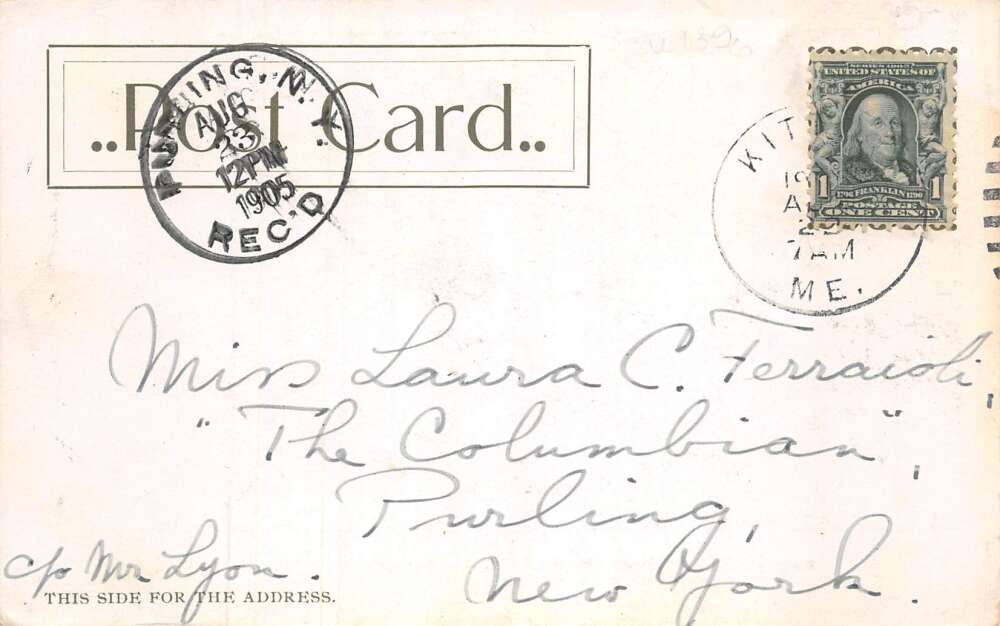 ..Post Card..
PURLING, N.Y.
AUG
23
12PM
1905
REC'D
KIT
19
A
22
7AM
ME.
SERIES 1902
UNITED STATES OF
AMERICA
1 1706 FRANKLIN 1790 1
POSTAGE
ONE CENT
Miss Laura C. Ferraioli,
"The Columbian",
Purling,
New York.
c/o Mr Lyon.
THIS SIDE FOR THE ADDRESS.